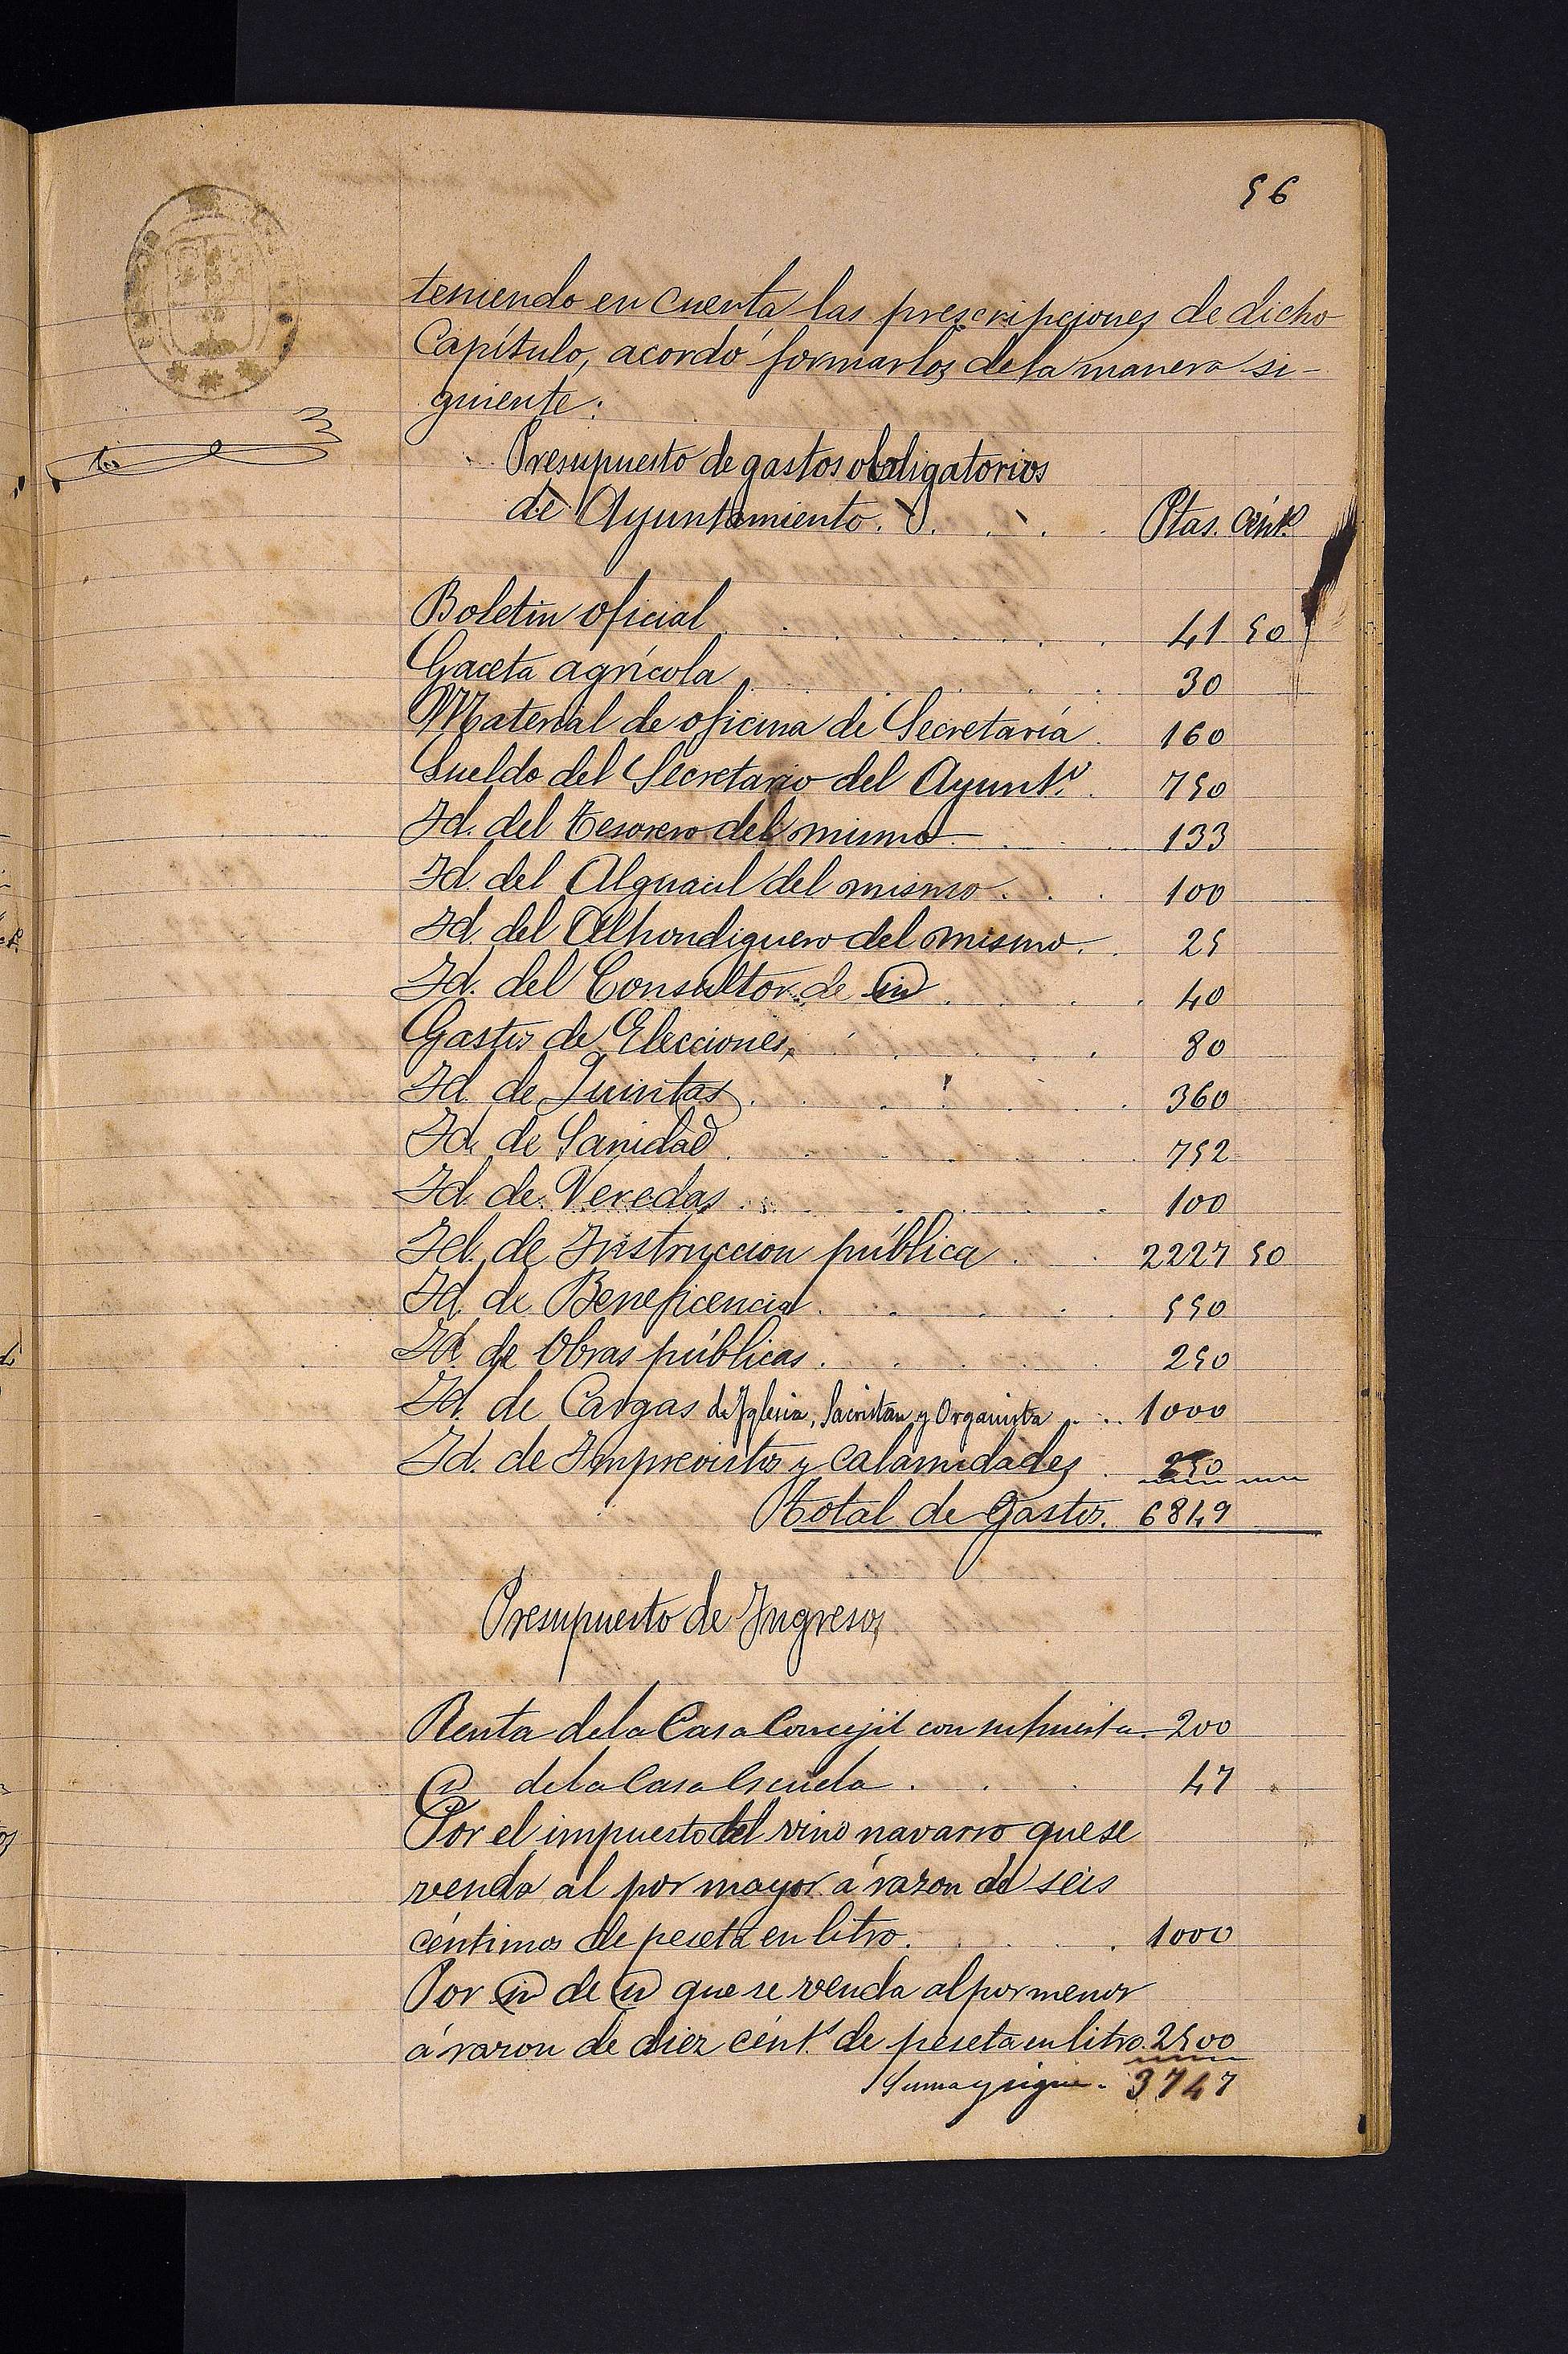 56
teniendo en cuenta las prescripciones de dicho
Capítulo, acordó formarlos de la manera si-
guiente:
Presupuesto de gastos obligatorios
de Ayuntamiento. Ptas. cént.s
Boletin oficial 41 50
Gaceta agrícola 30
Material de oficina de Secretaría 160
Sueldo del Secretario del Ayunt.o 750
Id. del tesorero del mismo 133
Id. del Alguacil del mismo 100
Id. del Alhondiguero del mismo 25
Id. del Consultor de id 40
Gastos de Elecciones 80
Id. de Quintas 360
Id. de Sanidad 752
Id. de Veredas 100
Id. de Instruccion pública 2227 50
Id. de Beneficencia 550
Id. de Obras públicas 250
Id. de Cargas de Iglesia, Sacristan y Organista 1000
Id. de Imprevistos y calamidades 250
Total de Gastos. 6849
Presupuesto de Ingresos
Renta de la Casa Concejil con su huerta 200
id de la Casa Escuela 47
Por el impuesto del vino navarro que se
venda al por mayor á razon de seis
céntimos de peseta en litro. 1000
Por id de id que se venda al por menor
á razon de diez cént.s de peseta en litro. 2500
Suma y sigue. 3747